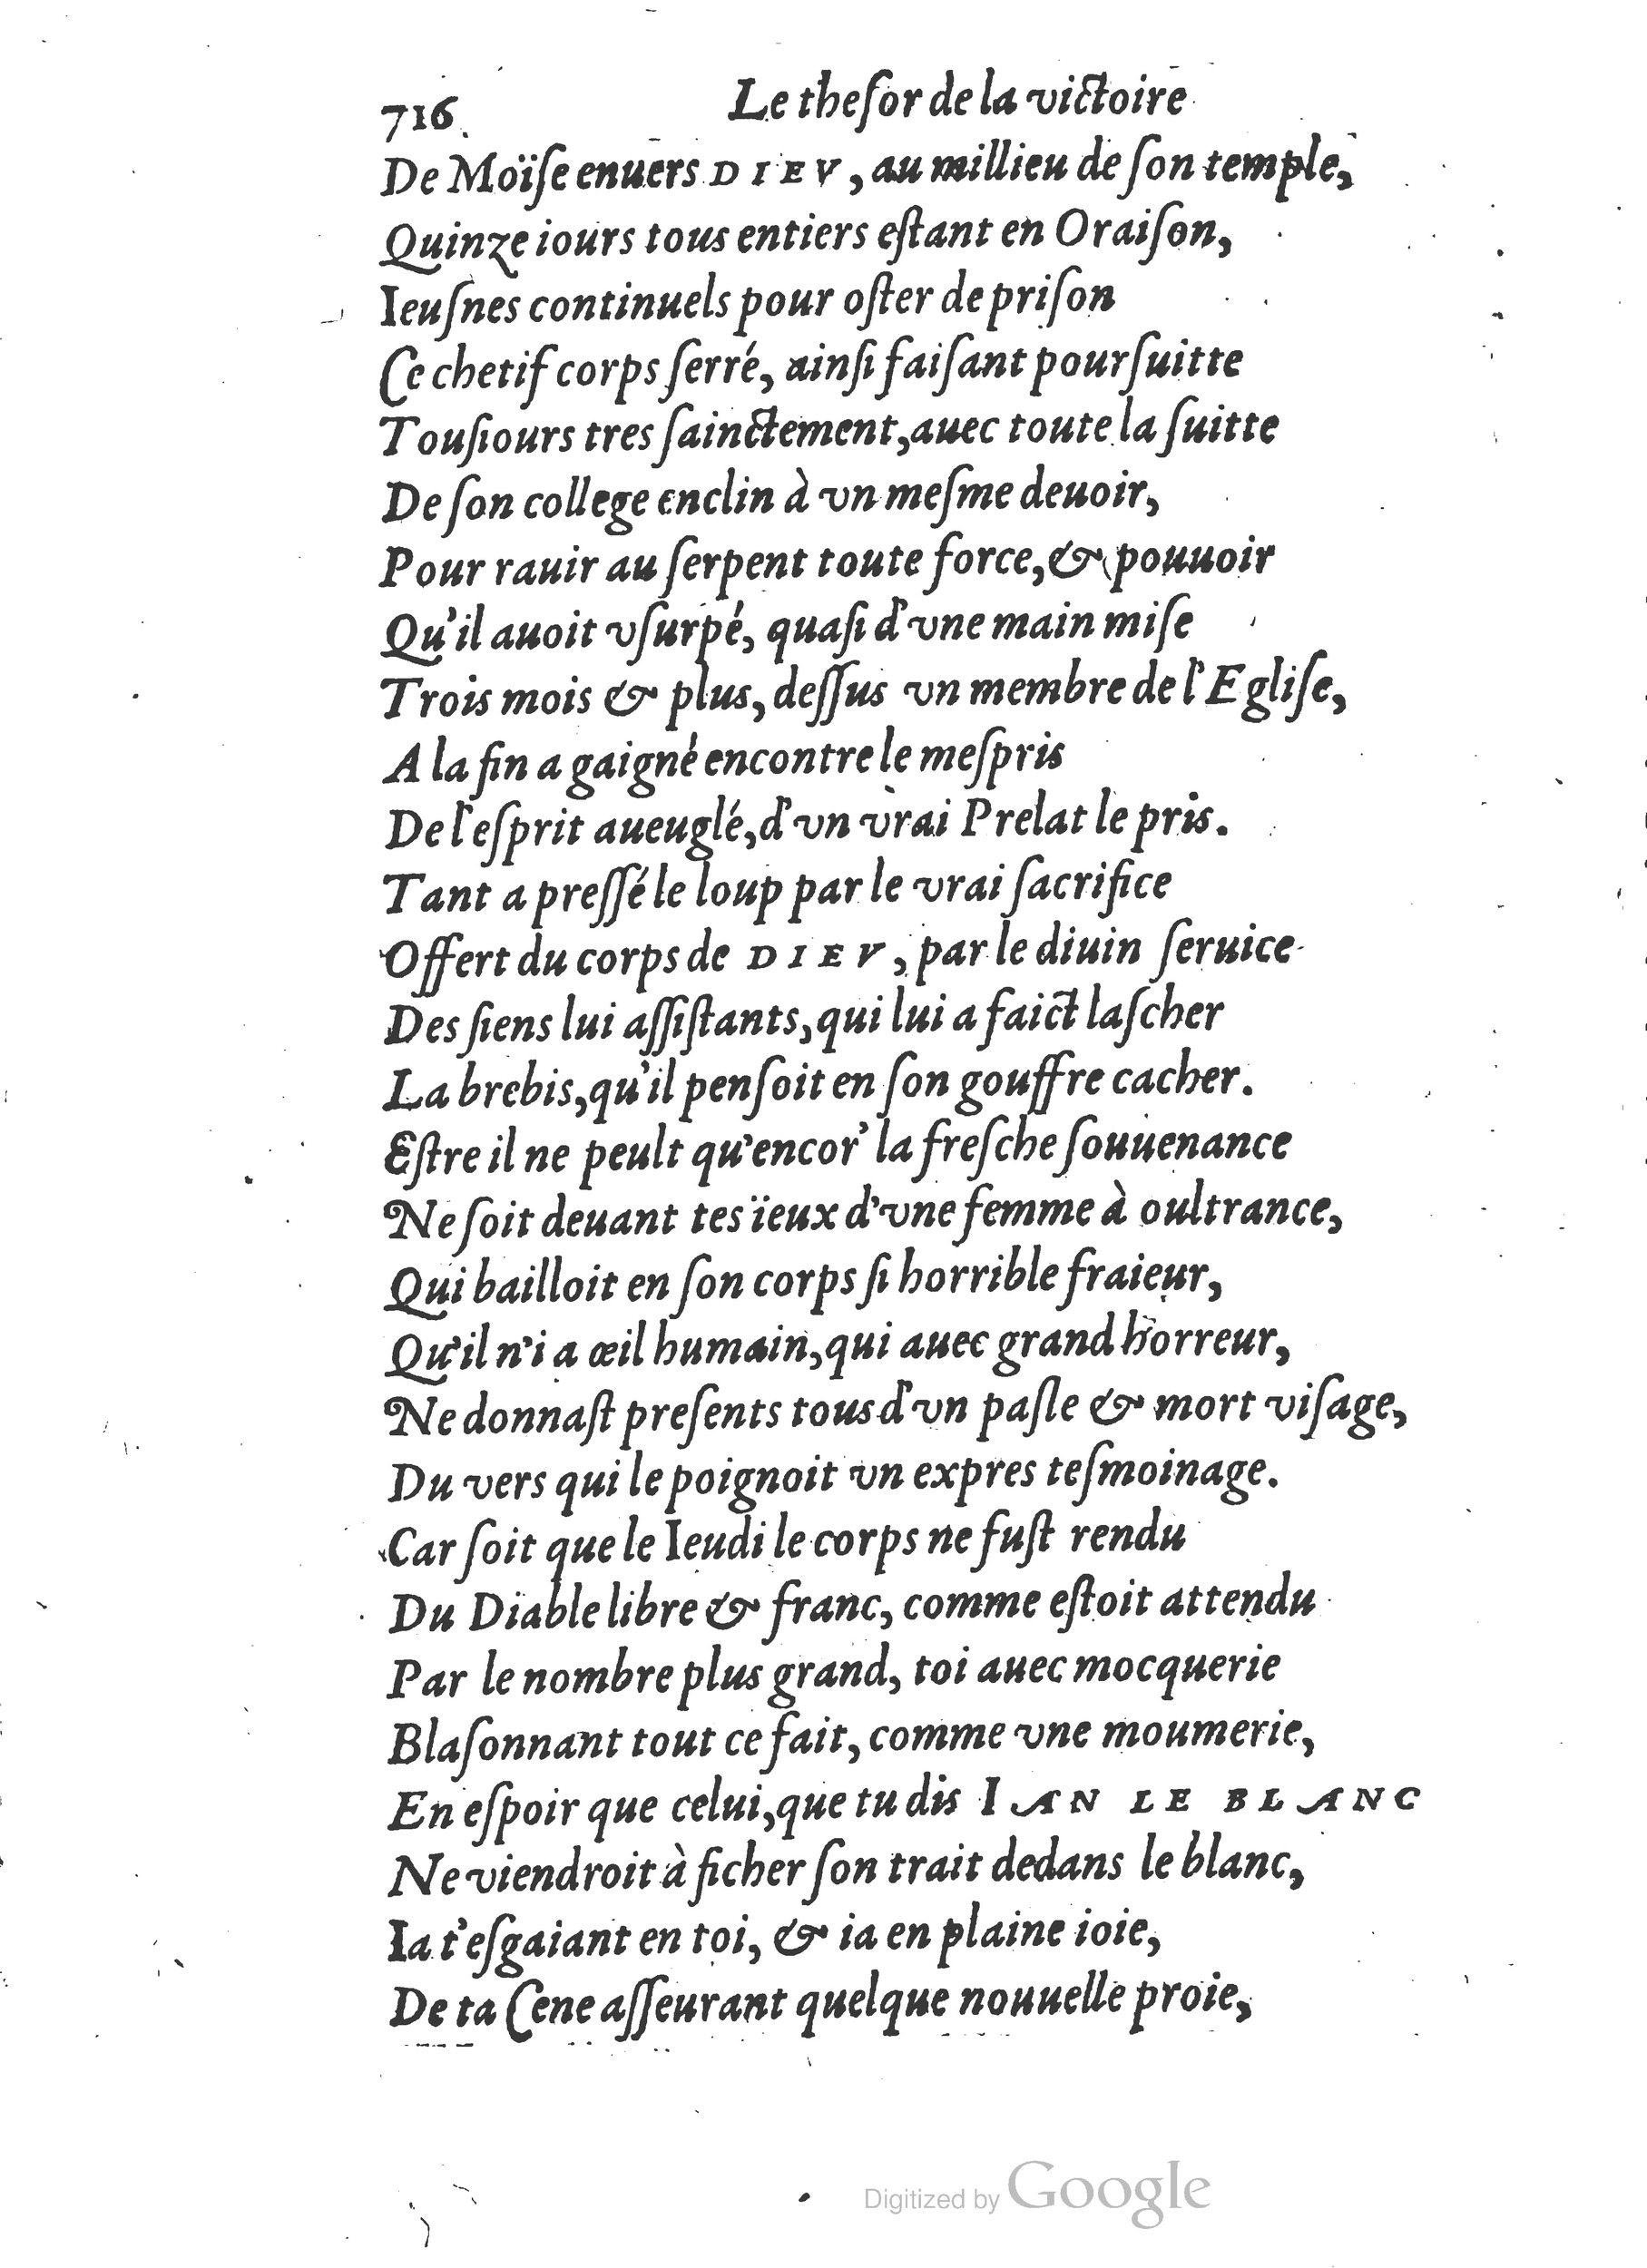 716. Le theſor de la victoire
De Moïſe enuers DIEV, au millieu de ſon temple,
Quinze iours tous entiers eſtant en Oraiſon,
Ieuſnes continuels pour oſter de priſon
Ce chetif corps ſerré, ainſi faiſant pourſuitte
Touſiours tres ſainctement, auec toute la ſuitte
De ſon college enclin à vn meſme deuoir,
Pour rauir au ſerpent toute force, & pouuoir
Qu'il auoit vſurpé, quaſi d'vne main miſe
Trois mois & plus, deſſus vn membre de l'Egliſe,
A la fin a gaigné encontre le meſpris
De l'eſprit aueuglé, d'vn vrai Prelat le pris.
Tant a preſſé le loup par le vrai ſacrifice
Offert du corps de DIEV, par le diuin ſeruice
Des ſiens lui aſſiſtants, qui lui a faict laſcher
La brebis, qu'il penſoit en ſon gouffre cacher.
Eſtre il ne peult qu'encor' la freſche ſouuenance
Ne ſoit deuant tes ïeux d'vne femme à oultrance,
Qui bailloit en ſon corps ſi horrible fraieur,
Qu'il n'i a œil humain, qui auec grand horreur,
Ne donnaſt preſents tous d'vn paſle & mort viſage,
Du vers qui le poignoit vn expres teſmoinage.
Car ſoit que le Ieudi le corps ne fuſt rendu
Du Diable libre & franc, comme eſtoit attendu
Par le nombre plus grand, toi auec mocquerie
Blaſonnant tout ce fait, comme vne moumerie,
En eſpoir que celui, que tu dis IAN LE BLANC
Ne viendroit à ficher ſon trait dedans le blanc,
Ia t'eſgaiant en toi, & ia en plaine ioie,
De ta Cene aſſeurant quelque nouuelle proie,
Digitized by Google